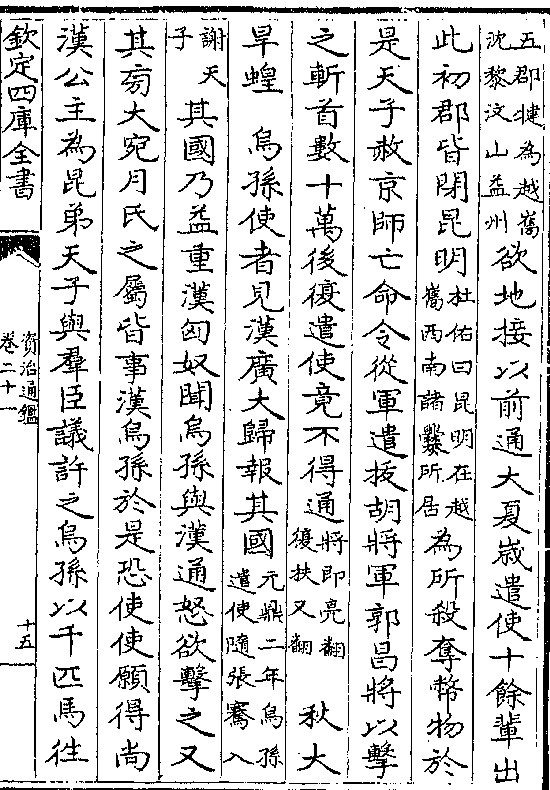 五郡犍為越巂
沈黎汶山益州
欲地接以前通大夏歲遣使十餘輩出
此初郡皆閉昆明
杜佑曰昆明在越
巂西南諸爨所居
為所殺奪幣物於
是天子赦京師亡命令從軍遣拔胡將軍郭昌將以擊
之斬首數十萬後復遣使竟不得通
將即亮翻
復扶又翻
秋大
旱蝗　烏孫使者見漢廣大歸報其國
元鼎二年烏孫
遣使隨張騫入
謝天
子
其國乃益重漢匈奴聞烏孫與漢通怒欲擊之又
其旁大宛月氏之屬皆事漢烏孫於是恐使使願得尚
漢公主為昆弟天子與羣臣議許之烏孫以千匹馬往
欽定四庫全書
資治通鑑
卷二十一
十五